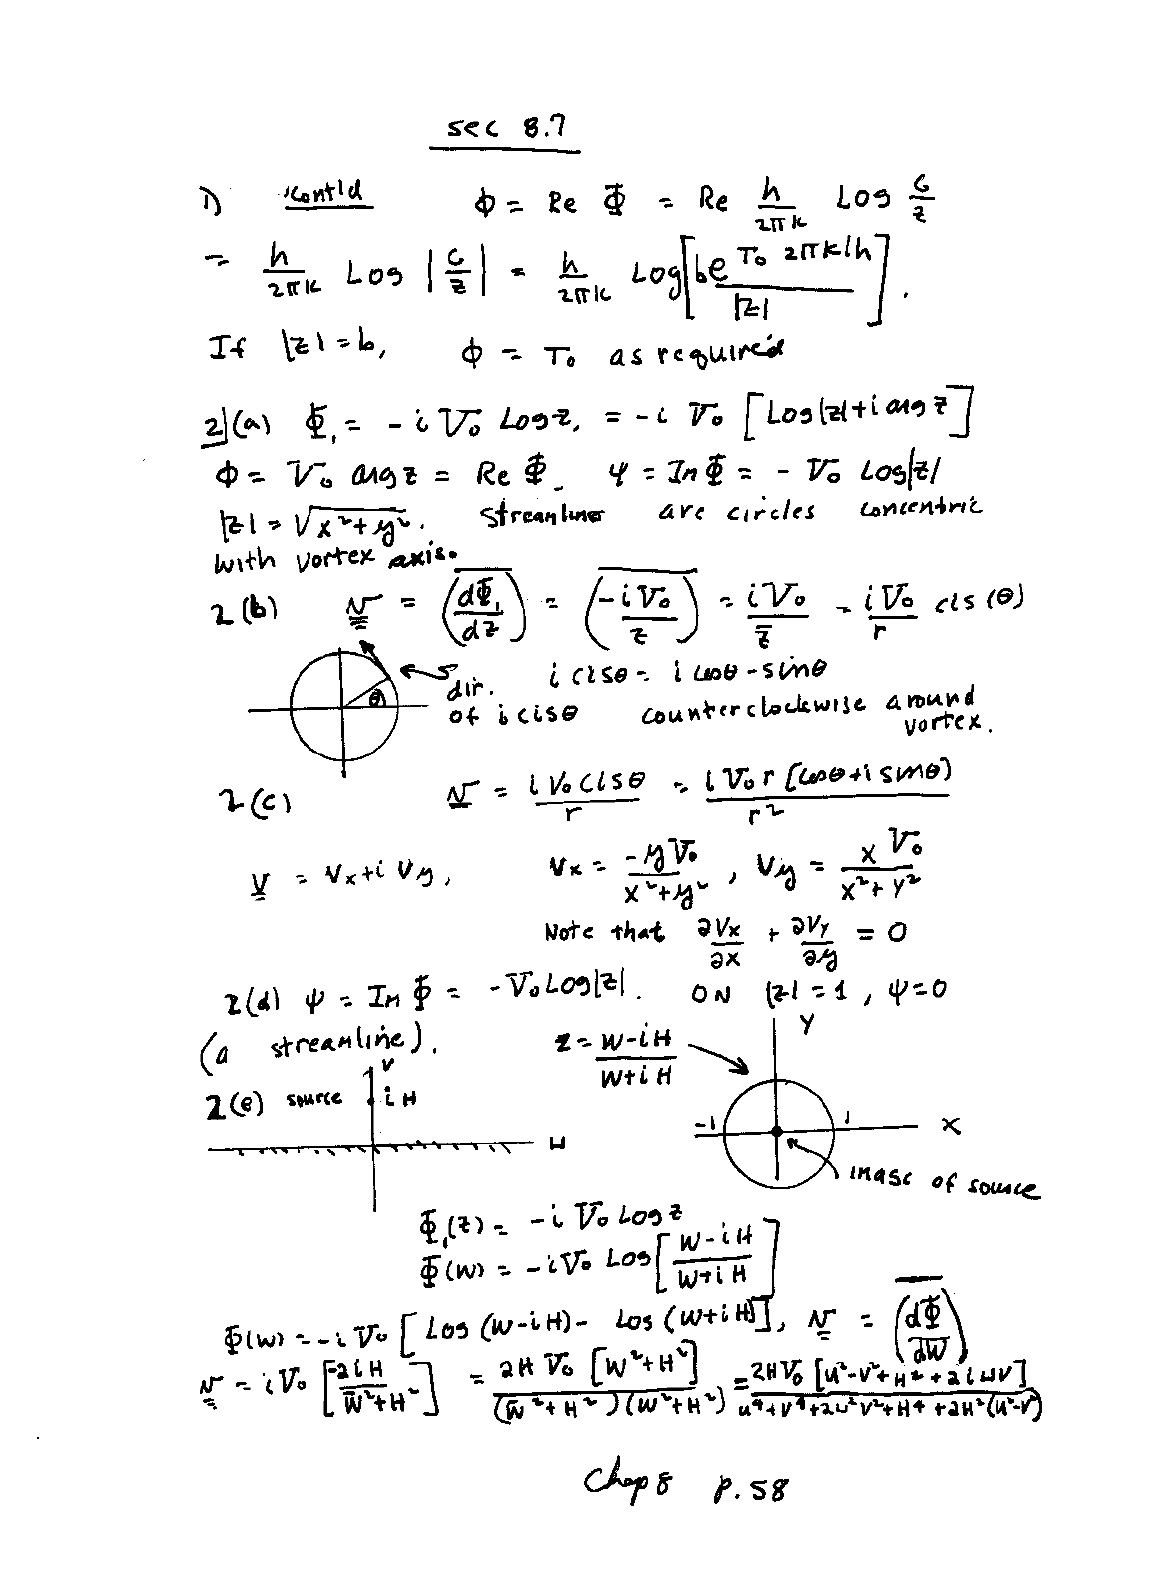 sec 8.7
1) cont'd ϕ = Re Φ = Re h/2πk Log c/z
= h/2πk Log |c/z| = h/2πk Log[be^{T₀ 2πk/h}/|z|].
If |z| = b, ϕ = T₀ as required
2](a) Φ₁ = -i V₀ Log z, = -i V₀ [Log|z| + i arg z]
ϕ = V₀ arg z = Re Φ ψ = Im Φ = - V₀ Log|z|
|z| = √(x²+y²). streamlines are circles concentric
with vortex axis.
2(b) v = \overline{(dΦ₁/dz)} = \overline{(-iV₀/z)} = iV₀/z̄ = iV₀/r cis(θ)
θ dir. i cisθ = i cosθ - sinθ
of i cisθ counterclockwise around
vortex.
2(c) v = i V₀ cisθ/r = i V₀ r [cosθ + i sinθ]/r²
v = Vx + i Vy, Vx = -y V₀/(x²+y²), Vy = x V₀/(x²+y²)
Note that ∂Vx/∂x + ∂Vy/∂y = 0
2(d) ψ = Im Φ = -V₀ Log|z|. ON |z| = 1, ψ=0
(a streamline). z = (w-iH)/(w+iH) Y
2(e) source v iH
u -1 1 X
image of source
Φ₁(z) = -i V₀ Log z
Φ(w) = -i V₀ Log[(w-iH)/(w+iH)]
Φ(w) = -i V₀ [Log(w-iH) - Log(w+iH)], v = \overline{(dΦ/dw)}
v = iV₀ [-2iH/(w̄²+H²)] = 2H V₀ [w²+H²]/((w̄²+H²)(w²+H²)) = 2HV₀ [u²-v²+H²+2iuv]/(u⁴+v⁴+2u²v²+H⁴+2H²(u²-v²))
Chap 8 p. 58